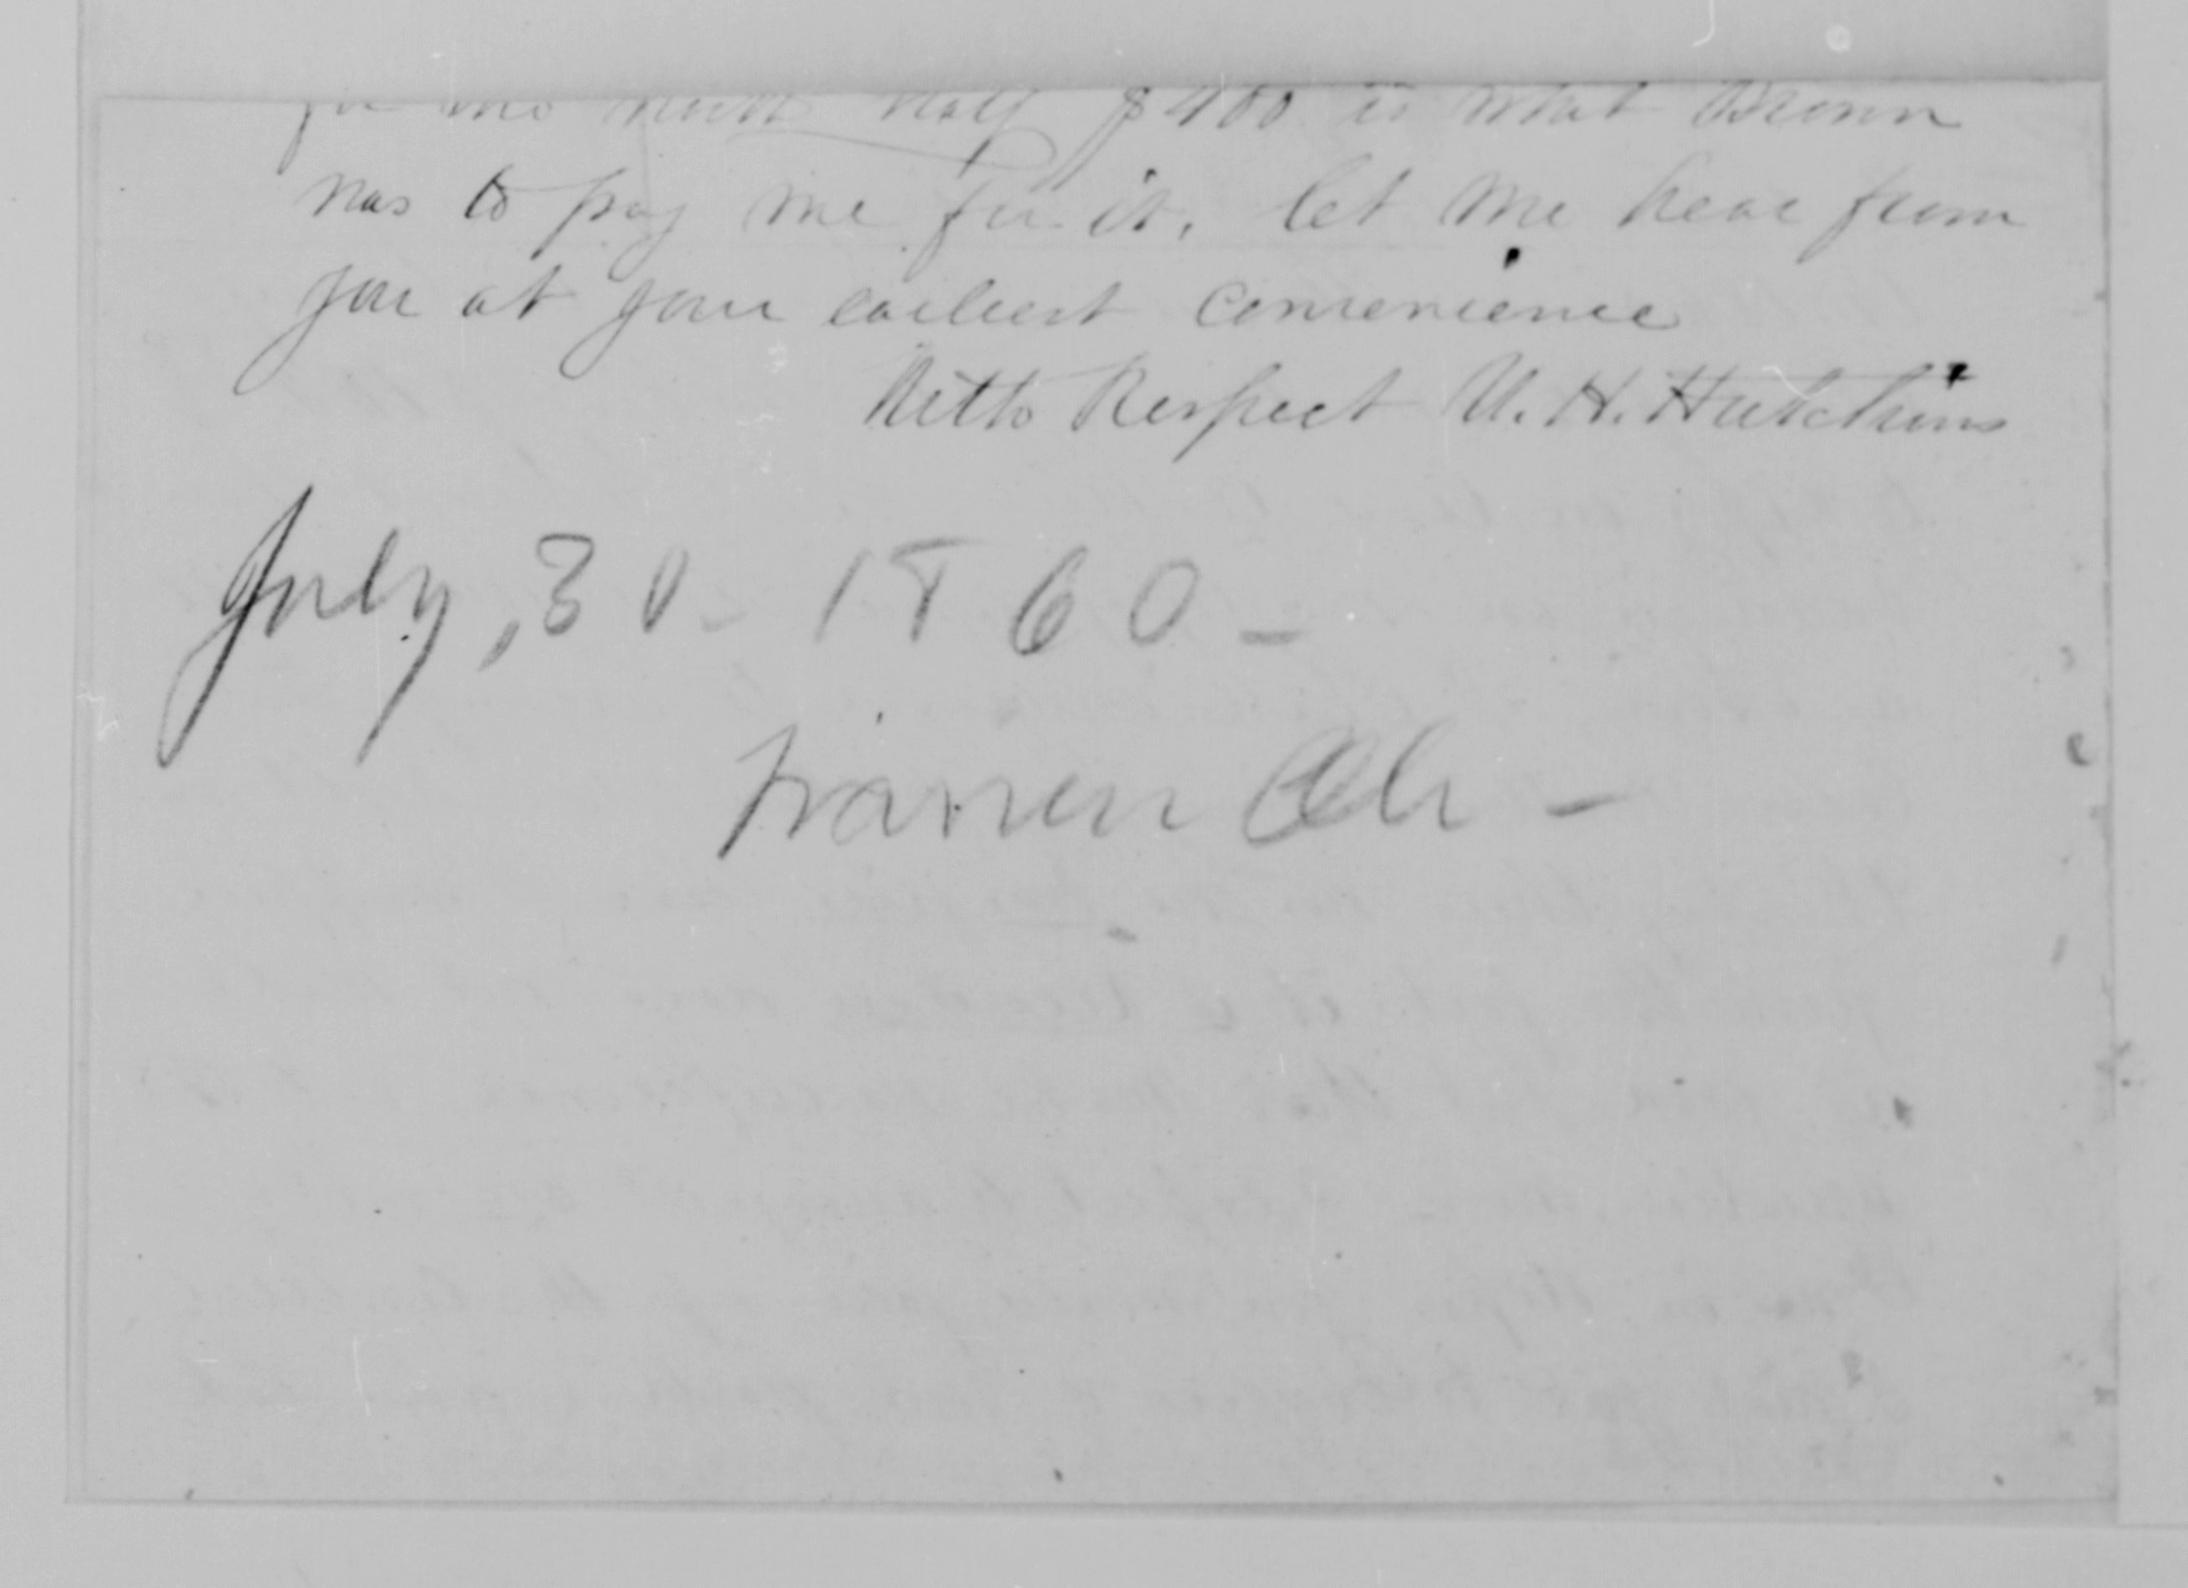 for the north half $400 is what Brown
was to pay me for it, let me hear from
you at your earliest convenience
With Respect U. H. Hutchins
July, 30 - 1860 -
Warren Oh -